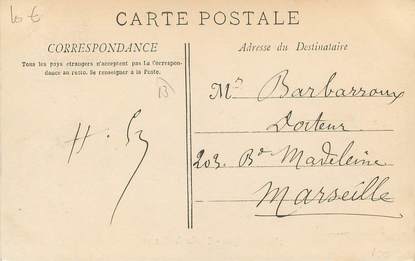 10 €
CARTE POSTALE
CORRESPONDANCE
Tous les pays étrangers n'acceptent pas La Correspon-
dance au recto. Se renseigner à la Poste.
Adresse du Destinataire
13
Mr Barbarroux
Docteur
203. Bd Madeleine
Marseille